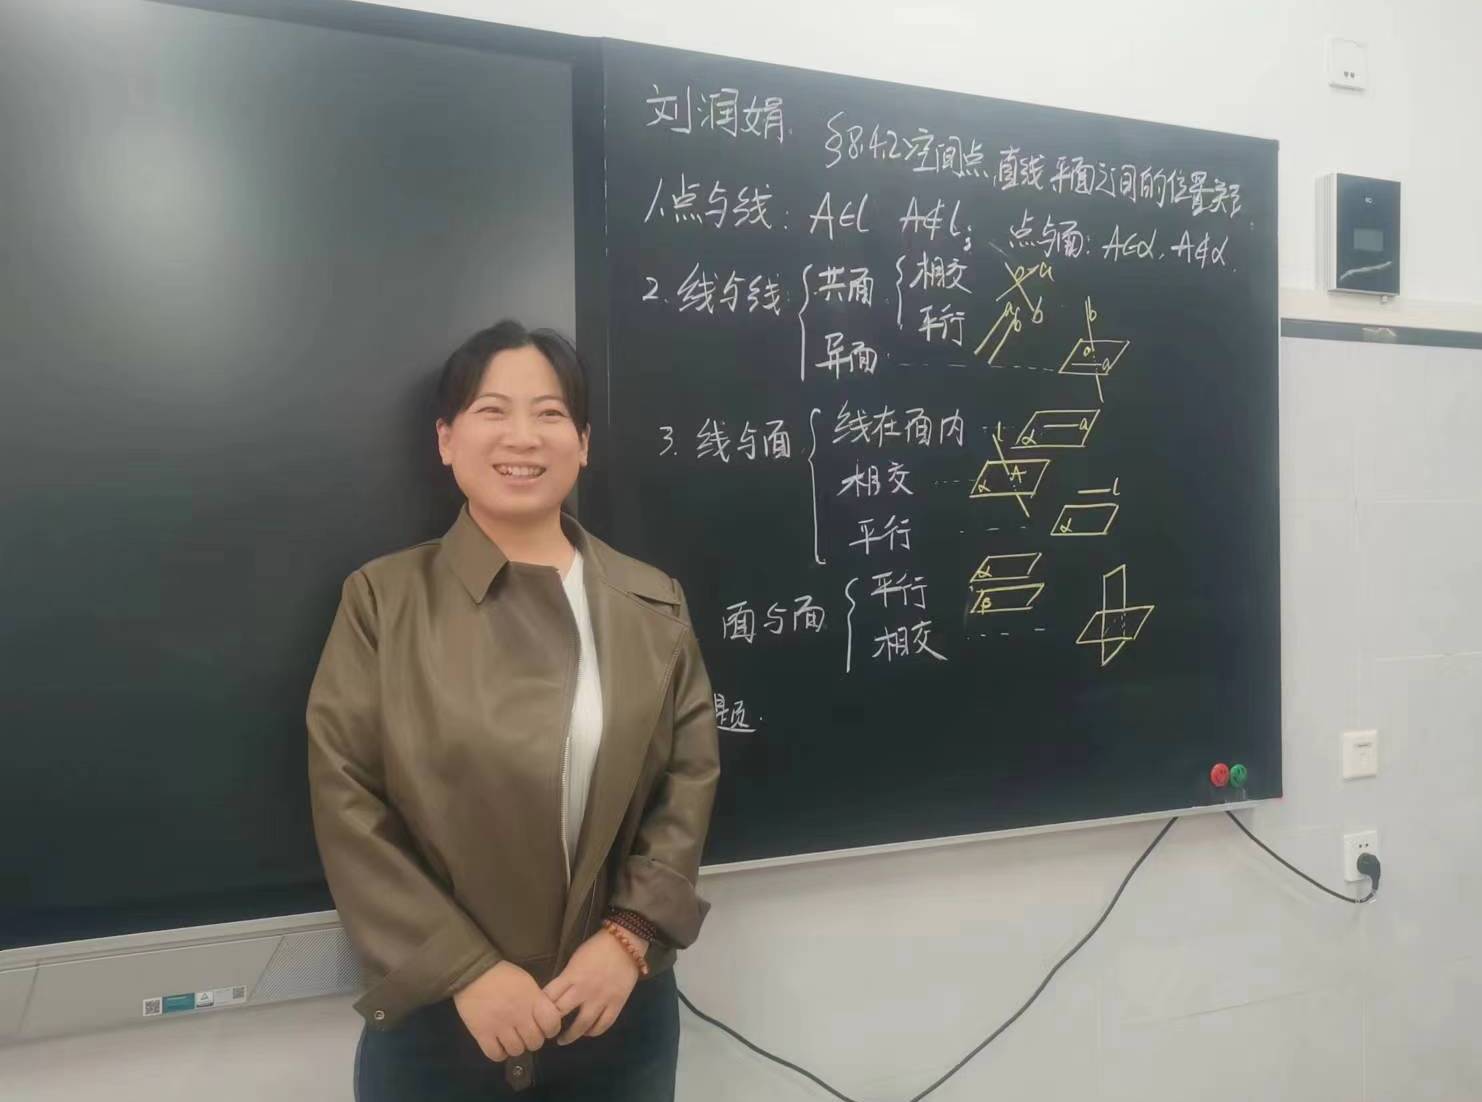 刘润娟 §8.4.2空间点,直线平面之间的位置关系
1.点与线: A∈l A∉l; 点与面: A∈α, A∉α.
2.线与线 { 共面 { 相交 a b o
平行 a b
异面 b o a
3.线与面 { 线在面内 α a
相交 l α A
平行 l α
面与面 { 平行 α β
相交
题.